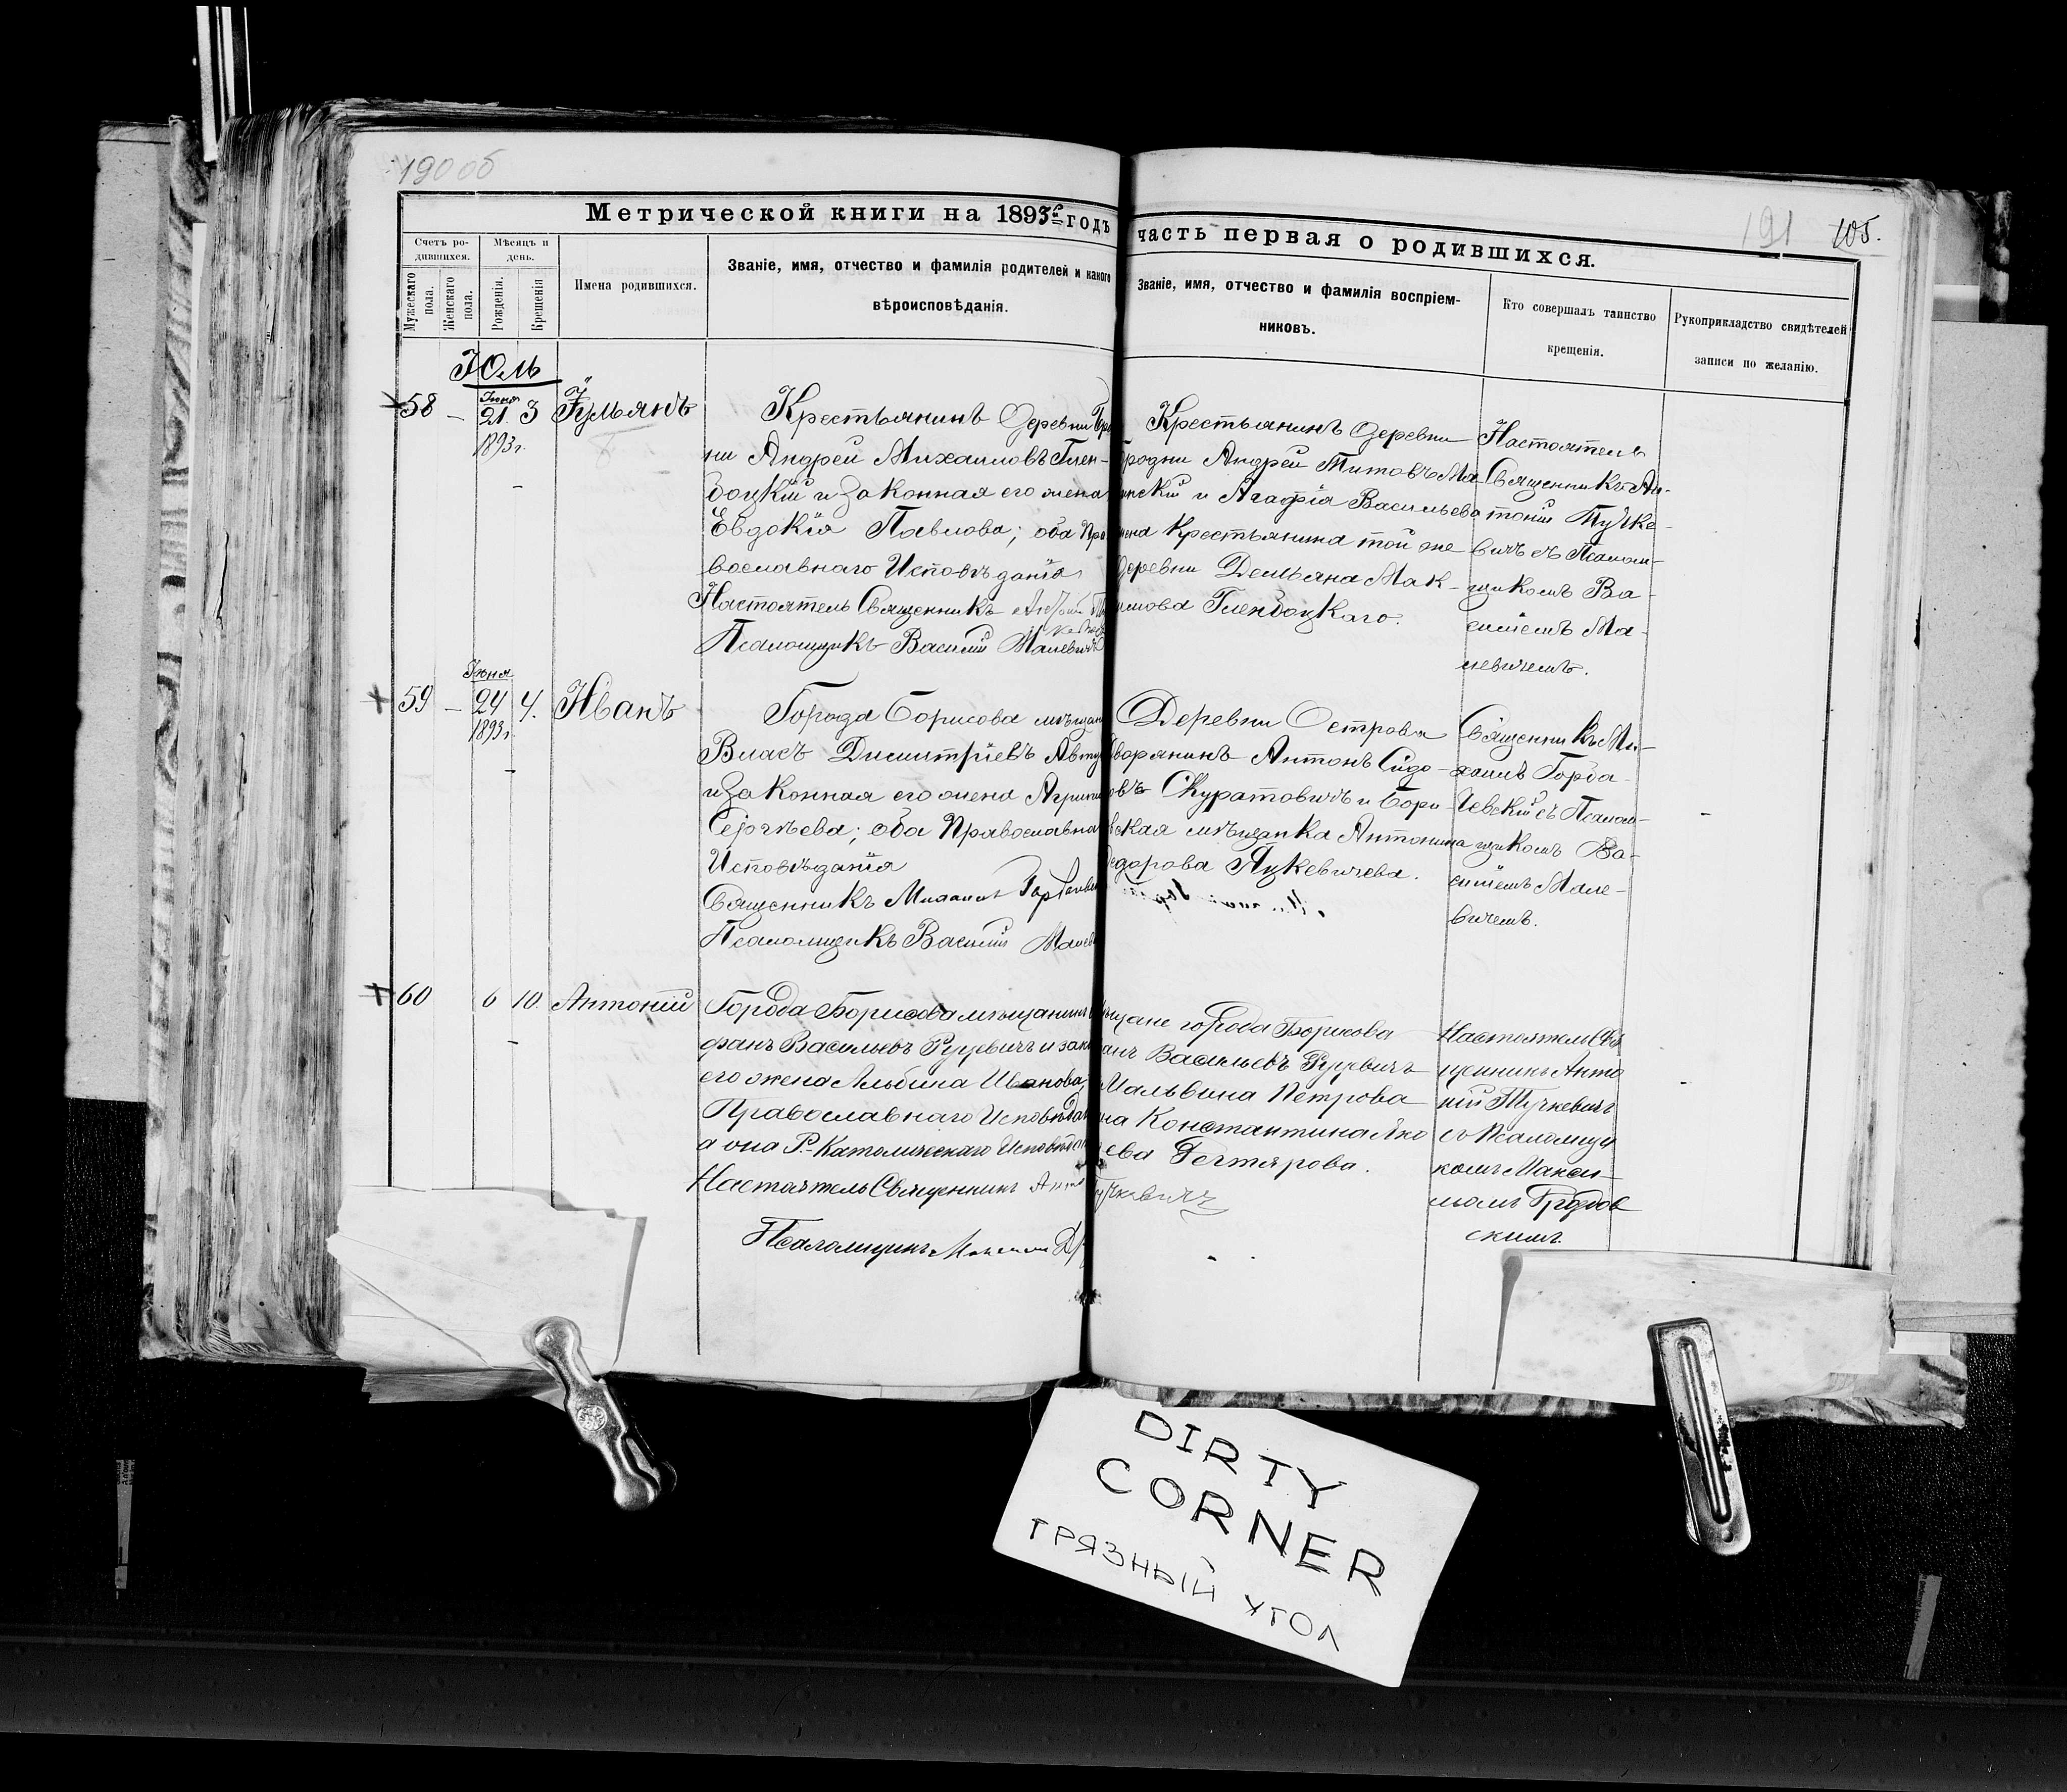 190 об
191 105.
Метрической книги на 1893й годъ часть первая о родившихся.
Счетъ родившихся.
Мужескаго пола.
Женскаго пола.
Мѣсяцъ и день.
Рожденія.
Крещенія
Имена родившихся.
Званіе, имя, отчество и фамилія родителей и какого
вѣроисповѣданія.
Званіе, имя, отчество и фамилія воспріем-
никовъ.
Кто совершалъ таинство
крещенія.
Рукоприкладство свидѣтелей
записи по желанію.
Іюль
58 – Іюня 21. 3 Іульянъ
1893г.
Крестьянинъ деревни
ни Андрей Михаиловъ Глен-
боцкій и законная его жена
Евдокія Павлова; оба Пра
вославнаго Исповѣданія
Настоятель Священникъ
Псаломщикъ Василій Малевичъ
Крестьянинъ деревни
Бродни Андрей Титовъ Ма
инскій и Агафія Васильева
жена Крестьянина той же
деревни Демьяна Мак-
симова Гленбоцкаго.
Настоятель
Священникъ Ан-
тоній Тучке-
вичъ съ Псалом-
щикомъ Ва-
силіемъ Ма-
левичемъ.
59 – Іюня 24 4. Иванъ
1893г.
Города Борисова мѣщан
Власъ Димитріевъ Авту
и законная его жена Агрипи
Сергѣева; оба Православна
Исповѣданія
Священникъ Михаилъ Горбачев
Псаломщикъ Василій Малев
Деревни Острова
дворянинъ Антонъ Сидо-
овъ Скуратовичъ и Бори
вская мѣщанка Антонина
едорова Яцкевичева.
Священникъ Ми-
хаилъ Горба-
чевскій съ Псалом-
щикомъ Ва-
силіемъ Мале-
вичемъ.
60 6 10. Антоній
Города Борисова мѣщанинъ
фанъ Васильевъ Руцевичъ и зак
его жена Альбина Иванова,
Православнаго Исповѣдан
а она Р.-Католическаго Исповѣдан
Настоятель Священникъ Антон Тучкевичъ
Псаломщикъ Максим
мѣщане города Борисова
анъ Васильевъ Руцевичъ
Мальвина Петрова
на Константина Яко
ева Дегтярова.
Настоятель Свя
щенникъ Анто
ній Тучкевичъ
съ Псаломщи
комъ Макси-
момъ
скимъ.
DIRTY
CORNER
ГРЯЗНЫЙ УГОЛ